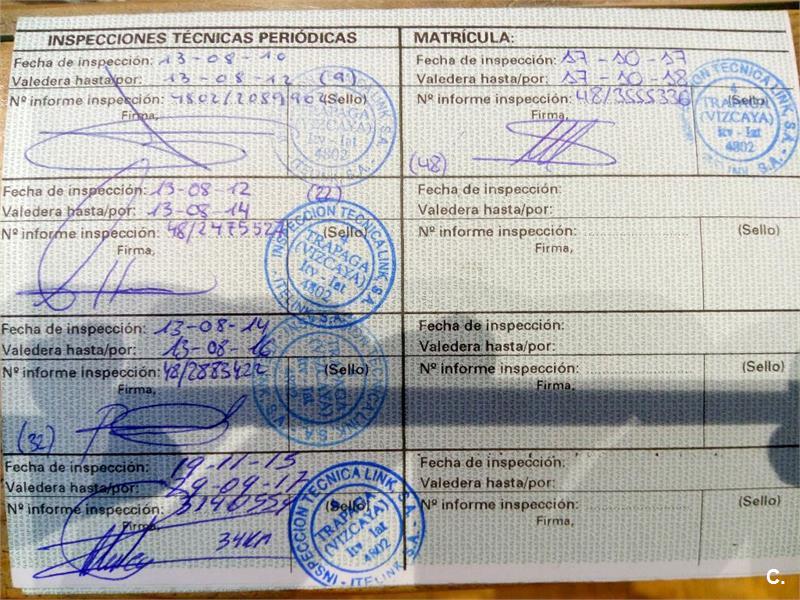 INSPECCIONES TÉCNICAS PERIÓDICAS
Fecha de inspección: 13-08-10
Valedera hasta/por: 13-08-12 (9)
Nº informe inspección: 4802/2089902 (Sello)
Firma,
INSPECCION TECNICA LINK, S.A.
TRAPAGA
(VIZCAYA)
Itv - Iat
4802
Fecha de inspección: 13-08-12 (22)
Valedera hasta/por: 13-08-14
Nº informe inspección: 48/2475527 (Sello)
Firma,
INSPECCION TECNICA LINK, S.A. - ITELINK, S.A.
4
TRAPAGA
(VIZCAYA)
Itv - Iat
4802
Fecha de inspección: 13-08-14
Valedera hasta/por: 13-08-16
Nº informe inspección: 48/2883422 (Sello)
Firma,
(32)
Fecha de inspección: 19-11-15
Valedera hasta/por: 19-09-17
Nº informe inspección: (Sello)
Firma,
34KM
INSPECCION TECNICA LINK, S.A. - ITELINK, S.A.
TRAPAGA
(VIZCAYA)
Itv - Iat
4802
MATRÍCULA:
Fecha de inspección: 17-10-17
Valedera hasta/por: 17-10-18
Nº informe inspección: 48/3555336 (Sello)
Firma,
(48)
TECNICA LINK, S.A.
4
TRAPAGA
(VIZCAYA)
Itv - Iat
4802
Fecha de inspección:
Valedera hasta/por:
Nº informe inspección: (Sello)
Firma,
Fecha de inspección:
Valedera hasta/por:
Nº informe inspección: (Sello)
Firma,
Fecha de inspección:
Valedera hasta/por:
Nº informe inspección: (Sello)
Firma,
C.